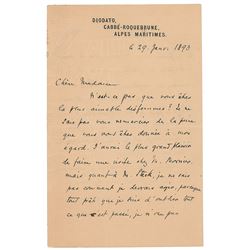 DIODATO,
CABBÉ-ROQUEBRUNE,
ALPES MARITIMES.
le 29 Janv. 1893
Chère Madame
N'est-ce pas que vous êtes
la plus aimable des femmes? Je ne
sais pas vous remercier de la peine
que vous vous êtes donnée à mon
égard. J'aurai le plus grand plaisir
de faire une visite chez
mais quant à de Stæck, je ne sais
pas comment je devrais agir, parceque
tout prêt que je sois d'oublier tout
ce qui s'est passé, je n'en puis